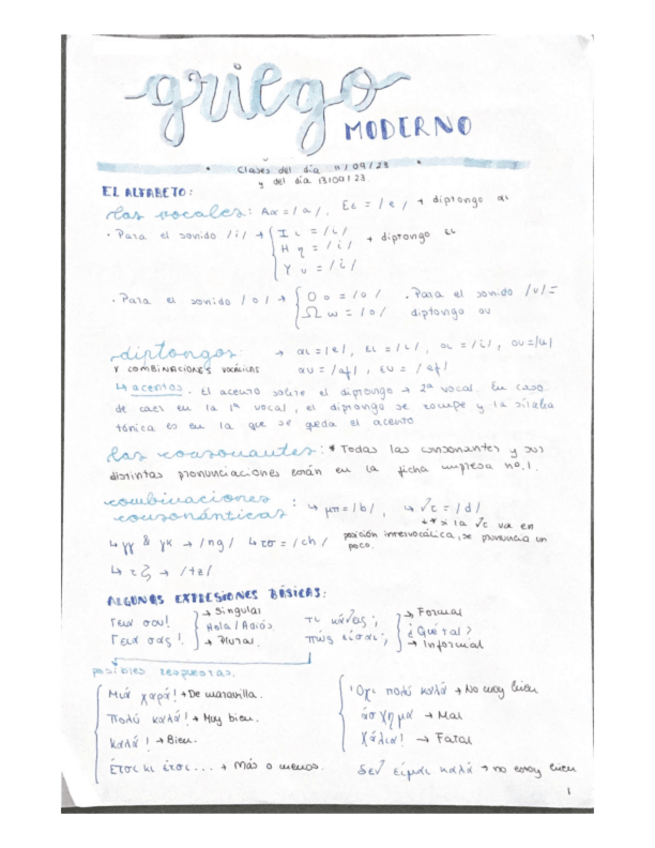 griego
MODERNO
• Clases del día 11/09/23 •
y del día 13/09/23
EL ALFABETO:
las vocales: Aα = /a/, Eε = /e/ + diptongo αι
· Para el sonido /i/ → I ι = /i/
H η = /i/ + diptongo ει
Y υ = /i/
· Para el sonido /o/ → O o = /o/ . Para el sonido /u/ =
Ω ω = /o/ diptongo ου
diptongos: → αι = /e/, ει = /i/, οι = /i/, ου = /u/
Y COMBINACIONES VOCÁLICAS αυ = /af/, ευ = /ef/
↳ acentos. El acento sobre el diptongo → 2ª vocal. En caso
de caer en la 1ª vocal, el diptongo se rompe y la sílaba
tónica es en la que se queda el acento
las consonantes: * Todas las consonantes y sus
distintas pronunciaciones están en la ficha impresa nº.1.
combinaciones
consonánticas : ↳ μπ = /b/, ↳ ντ = /d/
** si la ντ va en
posición intervocálica, se pronuncia un
poco.
↳ γγ & γκ → /ng/ ↳ τσ = /ch/
↳ τζ → /tz/
ALGUNAS EXPRESIONES BÁSICAS:
Γεια σου! → Singular
Hola / Adiós
Γεια σας! → Plural
τι κάνεις; → Formal
¿Qué tal?
πώς είσαι; → Informal
posibles respuestas.
Μιά χαρά! → De maravilla.
Πολύ καλά! → Muy bien.
καλά! → Bien.
Έτσι κι έτσι... → Más o menos.
Όχι πολύ καλά → No muy bien
άσχημα → Mal
Χάλια! → Fatal
δεν είμαι καλά → no estoy bien
1